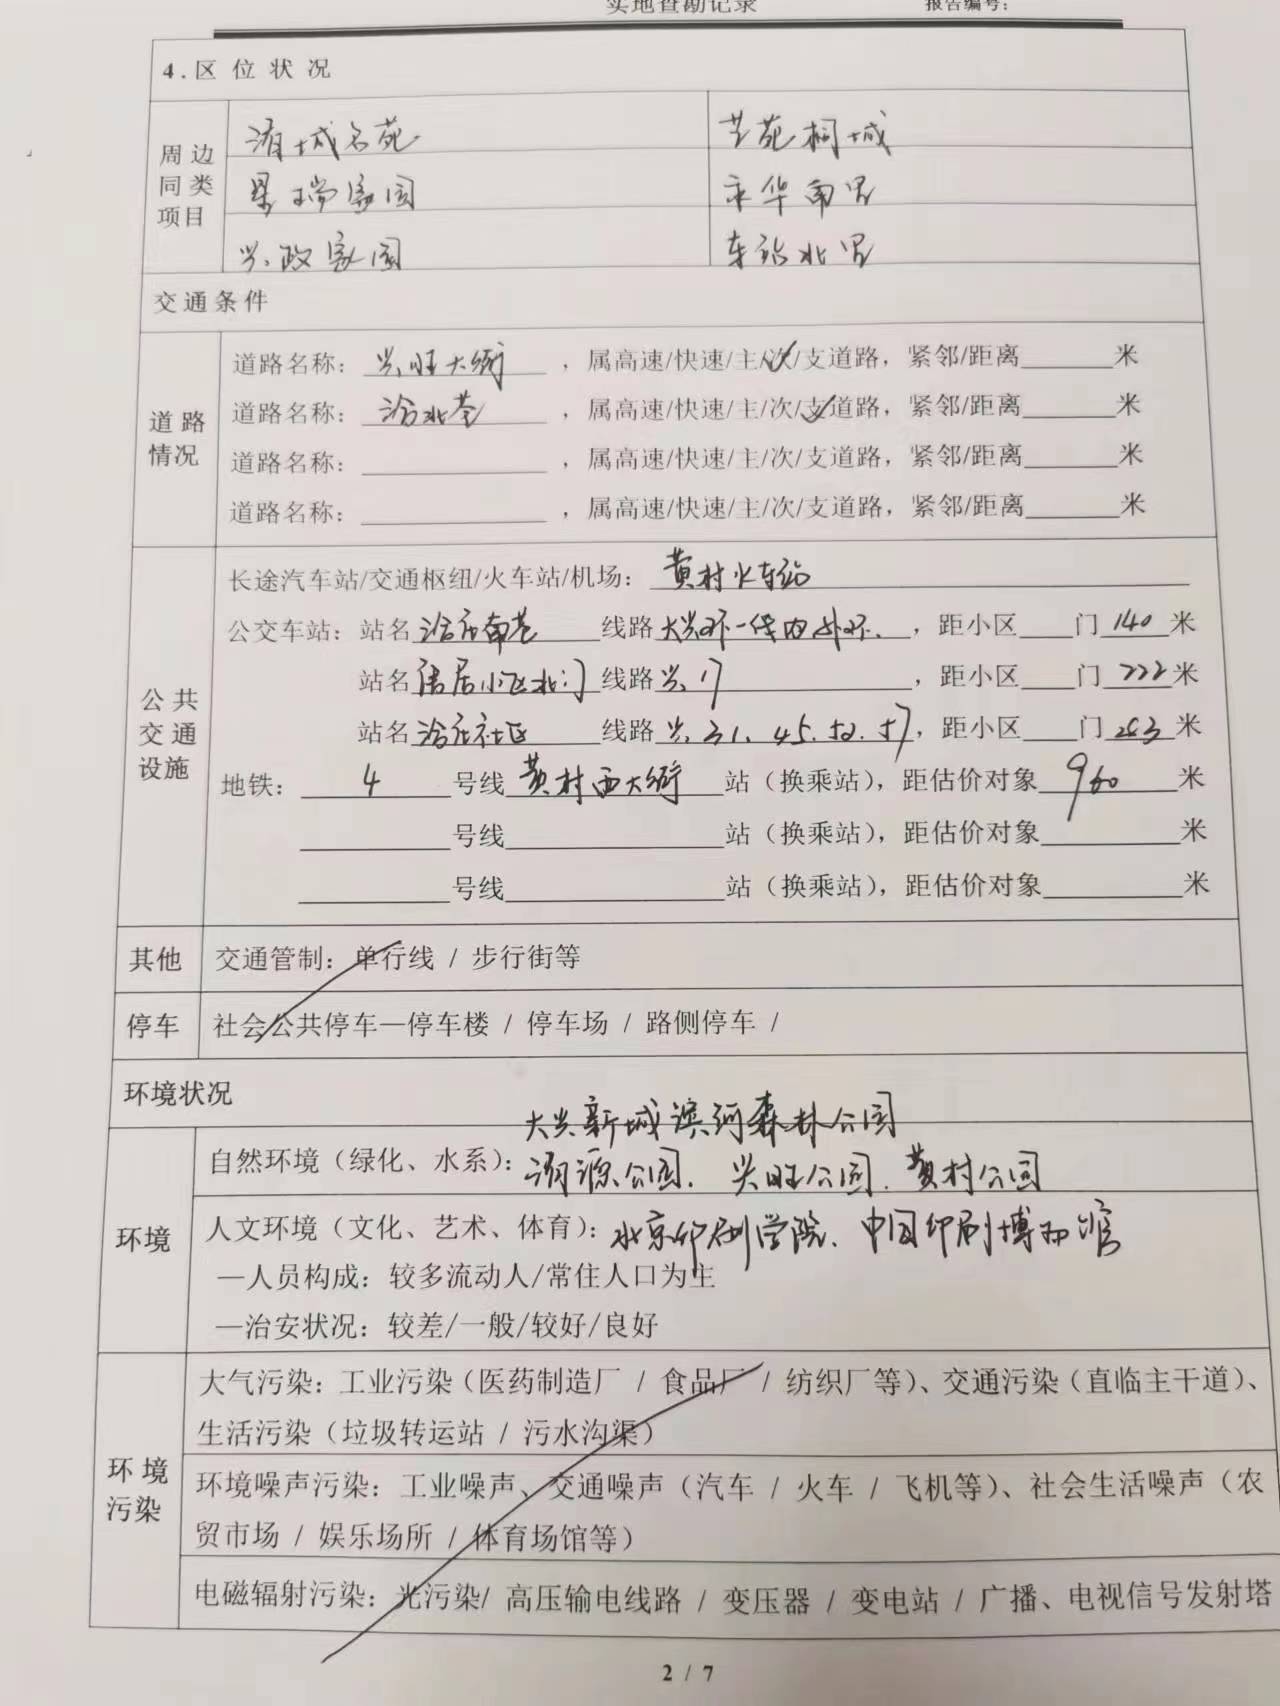 实地查勘记录 报告编号：
4.区位状况
周边同类项目
清城名苑 芝苑桐城
景瑞家园 永华南里
兴政家园 车站北里
交通条件
道路情况
道路名称：兴旺大街，属高速/快速/主/次/支道路，紧邻/距离______米
道路名称：洽北巷，属高速/快速/主/次/支道路，紧邻/距离______米
道路名称：______，属高速/快速/主/次/支道路，紧邻/距离______米
道路名称：______，属高速/快速/主/次/支道路，紧邻/距离______米
公共交通设施
长途汽车站/交通枢纽/火车站/机场：黄村火车站
公交车站：站名 南巷 线路 大兴环一线内外环.，距小区____门 140 米
站名 小区北门 线路 兴17，距小区____门 222 米
站名 社区 线路 兴31. 45. 52. 57，距小区____门 263 米
地铁：4 号线 黄村西大街 站（换乘站），距估价对象 960 米
______号线______站（换乘站），距估价对象______米
______号线______站（换乘站），距估价对象______米
其他 交通管制：单行线 / 步行街等
停车 社会公共停车—停车楼 / 停车场 / 路侧停车 /
环境状况
大兴新城滨河森林公园
环境
自然环境（绿化、水系）：源公园. 兴旺公园. 黄村公园
人文环境（文化、艺术、体育）：北京印刷学院. 中国印刷博物馆
—人员构成：较多流动人/常住人口为主
—治安状况：较差/一般/较好/良好
环境污染
大气污染：工业污染（医药制造厂 / 食品厂 / 纺织厂等）、交通污染（直临主干道）、
生活污染（垃圾转运站 / 污水沟渠）
环境噪声污染：工业噪声、交通噪声（汽车 / 火车 / 飞机等）、社会生活噪声（农
贸市场 / 娱乐场所 / 体育场馆等）
电磁辐射污染：光污染/ 高压输电线路 / 变压器 / 变电站 / 广播、电视信号发射塔
2 / 7